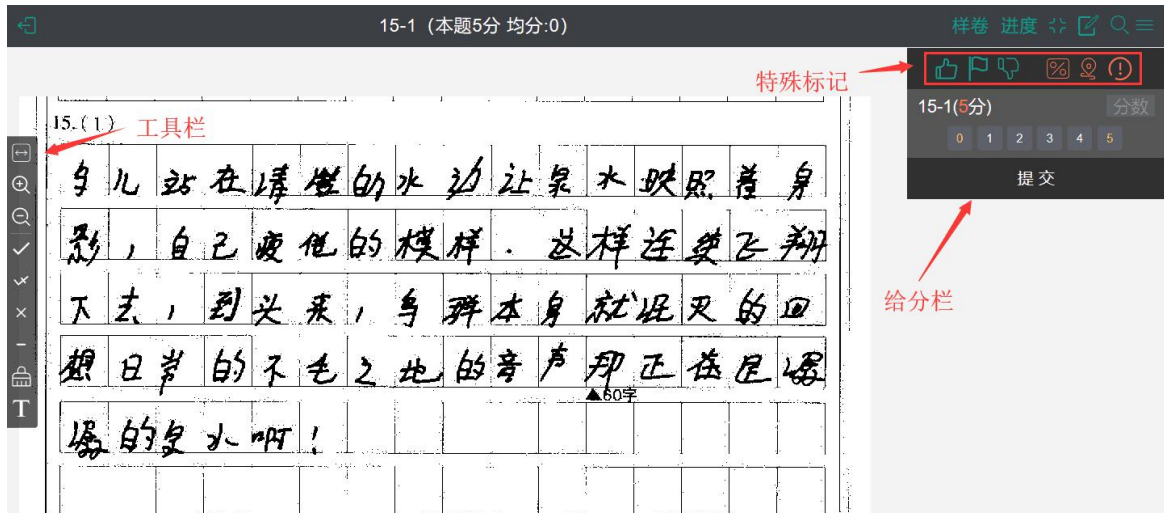 15-1（本题5分 均分:0）
样卷 进度
特殊标记
15-1(5分) 分数
0 1 2 3 4 5
提交
给分栏
工具栏
T
15.(1)
鸟儿站在清澈的水边让泉水映照着身
影，自己疲惫的模样.这样连续飞翔
下去，到头来，鸟群本身就泯灭的回
想日常的不毛之地的音声却正在是潺
▲60字
潺的泉水啊！